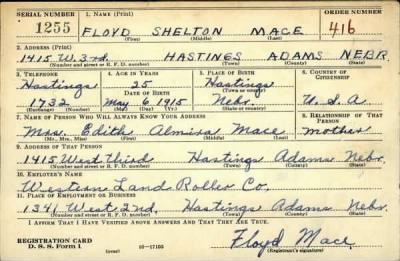 SERIAL NUMBER 1. NAME (Print) ORDER NUMBER
1255 FLOYD SHELTON MACE 416
(First) (Middle) (Last)
2. ADDRESS (Print)
1415 W. 3rd. HASTINGS ADAMS NEBR.
(Number and street or R. F. D. number) (Town) (County) (State)
3. TELEPHONE 4. AGE IN YEARS 5. PLACE OF BIRTH 6. COUNTRY OF CITIZENSHIP
Hastings 25 Hastings
(Exchange) DATE OF BIRTH (Town or county)
1732 May 6 1915 Nebr. U.S.A
(Number) (Mo.) (Day) (Yr.) (State or country)
7. NAME OF PERSON WHO WILL ALWAYS KNOW YOUR ADDRESS 8. RELATIONSHIP OF THAT PERSON
Mrs. Edith Almira Mace mother
(Mr., Mrs., Miss) (First) (Middle) (Last)
9. ADDRESS OF THAT PERSON
1415 West Third Hastings Adams Nebr.
(Number and street or R. F. D. number) (Town) (County) (State)
10. EMPLOYER'S NAME
Western Land Roller Co.
11. PLACE OF EMPLOYMENT OR BUSINESS
1341 West 2nd. Hastings Adams Nebr.
(Number and street or R. F. D. number) (Town) (County) (State)
I AFFIRM THAT I HAVE VERIFIED ABOVE ANSWERS AND THAT THEY ARE TRUE.
Floyd Mace
REGISTRATION CARD
D. S. S. Form 1 16-17105 (Registrant's signature)